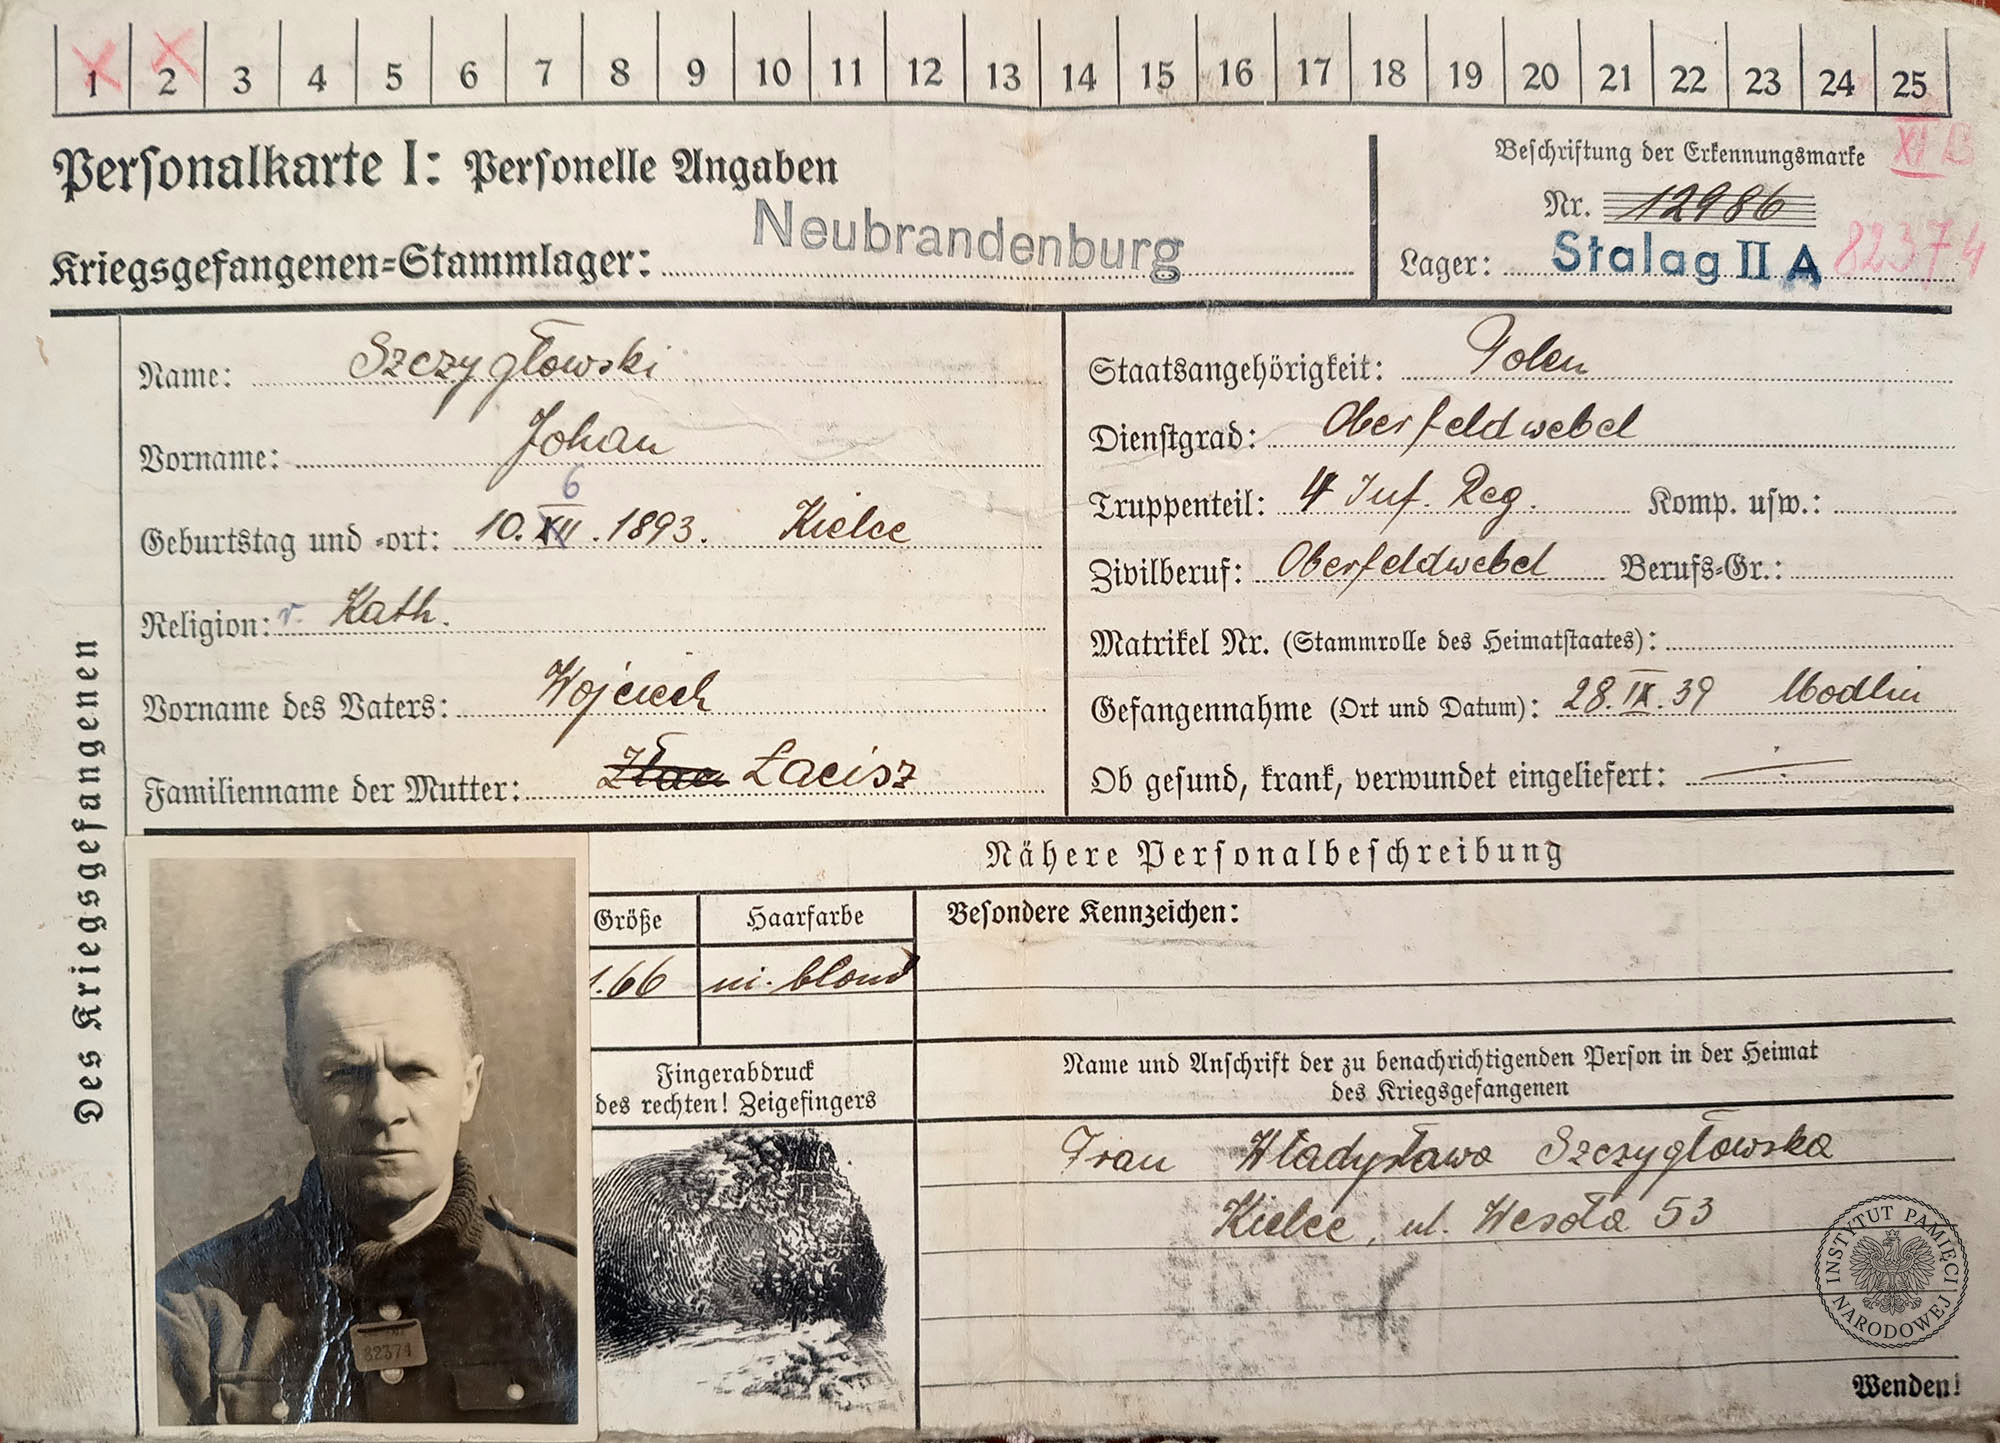 1 2 3 4 5 6 7 8 9 10 11 12 13 14 15 16 17 18 19 20 21 22 23 24 25
Personalkarte I: Personelle Angaben
Kriegsgefangenen=Stammlager: Neubrandenburg
Beschriftung der Erkennungsmarke XI B
Nr. 12986
Lager: Stalag II A 82374
Des Kriegsgefangenen
Name: Szczygłowski
Vorname: Johan
6
Geburtstag und =ort: 10. XII. 1893. Kielce
Religion: r. Kath.
Vorname des Vaters: Wojciech
Familienname der Mutter: Łacisz
Staatsangehörigkeit: Polen
Dienstgrad: Oberfeldwebel
Truppenteil: 4 Inf. Reg. Komp. usw.:
Zivilberuf: Oberfeldwebel Berufs=Gr.:
Matrikel Nr. (Stammrolle des Heimatstaates):
Gefangennahme (Ort und Datum): 28. IX. 39 Modlin
Ob gesund, krank, verwundet eingeliefert:
Nähere Personalbeschreibung
Größe Haarfarbe Besondere Kennzeichen:
1.66 m. blond
Fingerabdruck
des rechten! Zeigefingers
Name und Anschrift der zu benachrichtigenden Person in der Heimat
des Kriegsgefangenen
Frau Władysława Szczygłowska
Kielce, ul. Wesoła 53
82374
INSTYTUT PAMIĘCI NARODOWEJ
Wenden!